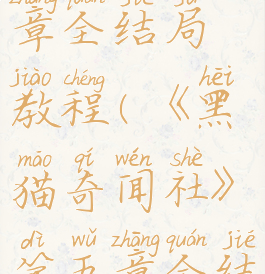 zhāng quán jié jú
章全结局
jiào chéng hēi
教程(《黑
māo qí wén shè
猫奇闻社》
dì wǔ zhāng quán jié
第五章全结